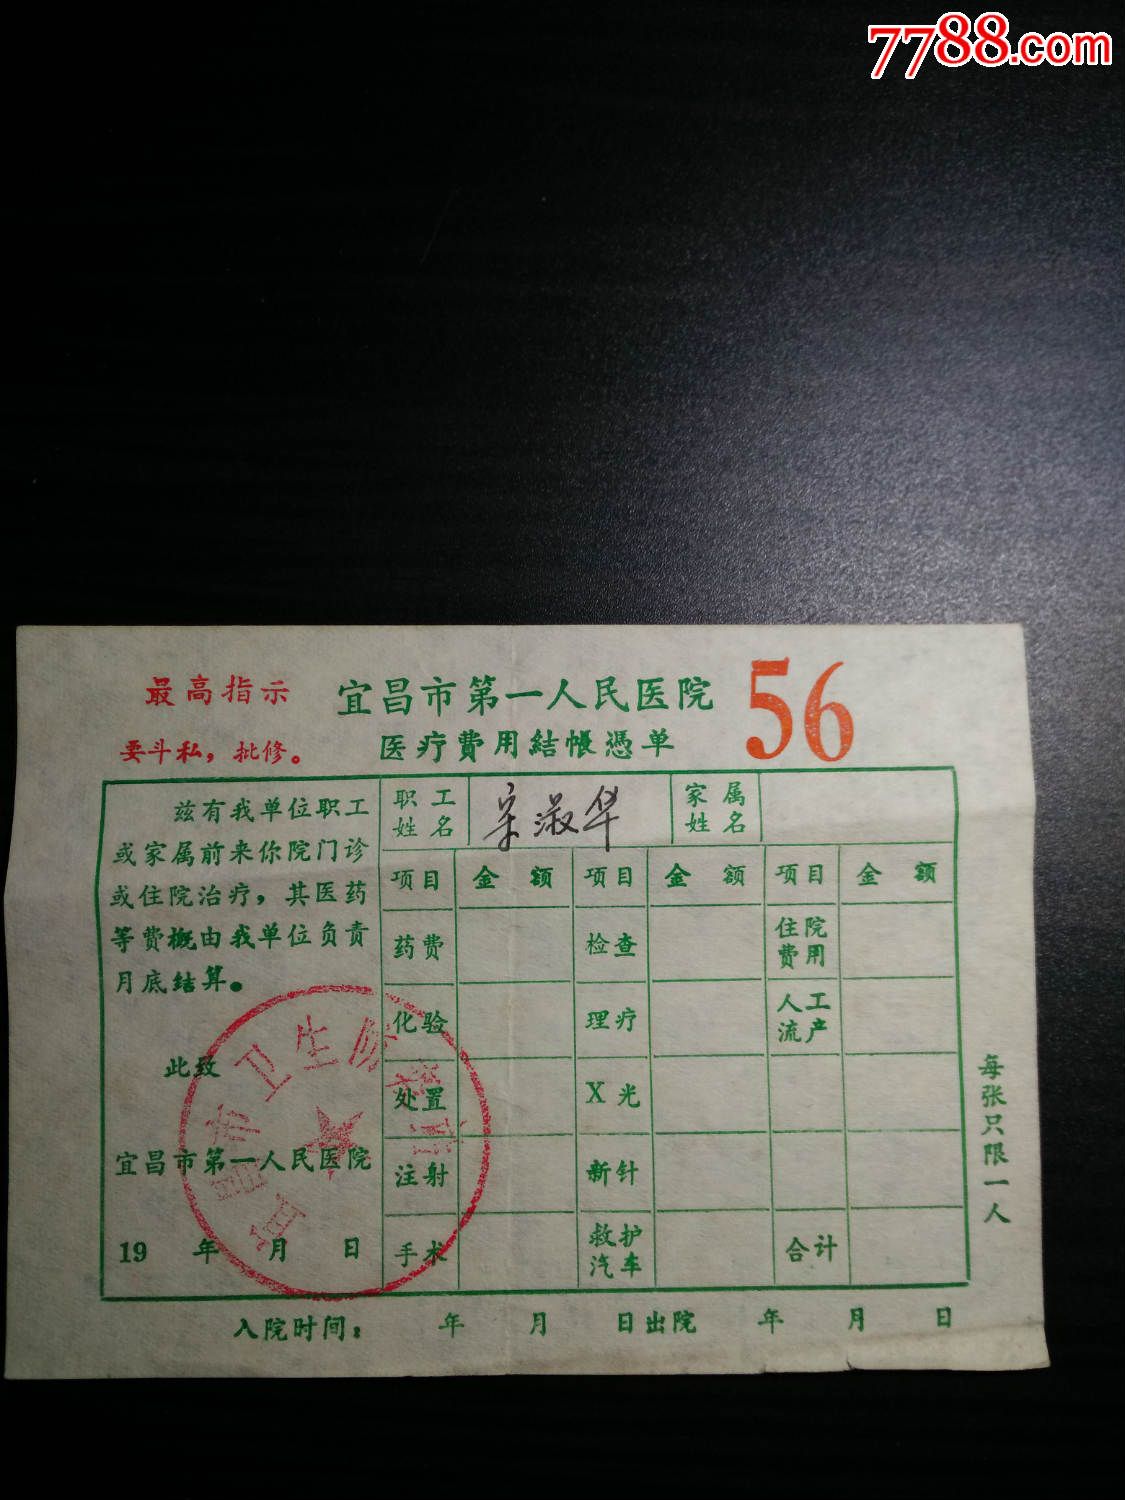 7788.com
最高指示
要斗私，批修。
宜昌市第一人民医院
医疗费用結帳憑单
56
兹有我单位职工
或家属前来你院门诊
或住院治疗，其医药
等费概由我单位负责
月底结算。
此致
宜昌市第一人民医院
19 年 月 日
职工姓名 宋淑华 家属姓名
项目 金额 项目 金额 项目 金额
药费 检查 住院费用
化验 理疗 人工流产
处置 X光
注射 新针
手术 救护汽车 合计
每张只限一人
入院时间： 年 月 日出院 年 月 日
宜昌市卫生防疫站